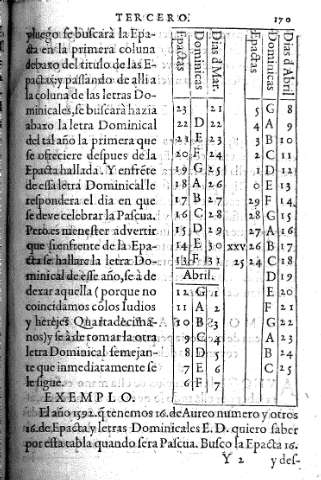 TERCERO. 170
y luego se buscarà la Epa-
cta en la primera coluna
debaxo del titulo de las E-
pactas: y passando de alli a
la coluna de las letras Do-
minicales, se buscarà hazia
abaxo la letra Dominical
del tal año la primera que
se ofreciere despues de la
Epacta hallada. Y enfrẽte
de essa letra Dominical le
respondera el dia en que
se deve celebrar la Pascua.
Pero es menester advertir
que si enfrente de la Epa-
cta se hallare la letra Do-
minical de esse año, se à de
dexar aquella (porque no
coincidamos cõ los Iudios
y herejes Quartadecima-
nos) y se à de tomar la otra
letra Dominical semejan-
te que inmediatamente se
le sigue.
Epactas Dominicas Dias d Mar.
23 21
22 D 22
21 E 23
20 F 24
19 G 25
18 A 26
17 B 27
16 C 28
15 D 29
14 E 30
13 F 31
Abril.
12 G 1
11 A 2
10 B 3
9 C 4
8 D 5
7 E 6
6 F 7
Epactas Dominicas Dias d Abril
5 G 8
4 A 9
3 B 10
2 C 11
1 D 12
0 E 13
29 F 14
28 G 15
27 A 16
XXV 26 B 17
25 24 C 18
D 19
E 20
F 21
G 22
A 23
B 24
C 25
EXEMPLO.
El año 1592. q̃ tenemos 16. de Aureo numero y otros
16. de Epacta y letras Dominicales E. D. quiero saber
por esta tabla quando sera Pascua. Busco la Epacta 16.
Y 2 y des-